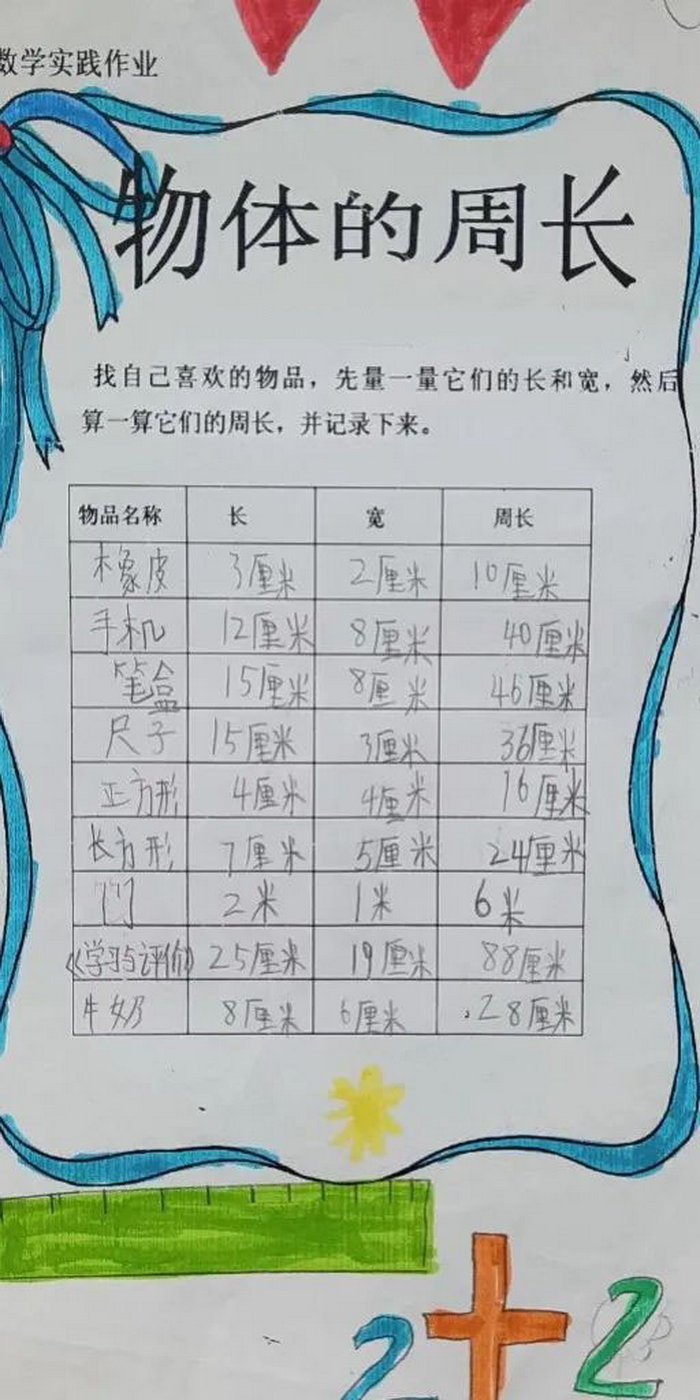 数学实践作业
物体的周长
找自己喜欢的物品，先量一量它们的长和宽，然后
算一算它们的周长，并记录下来。
物品名称 长 宽 周长
橡皮 3厘米 2厘米 10厘米
手机 12厘米 8厘米 40厘米
笔盒 15厘米 8厘米 46厘米
尺子 15厘米 3厘米 36厘米
正方形 4厘米 4厘米 16厘米
长方形 7厘米 5厘米 24厘米
门 2米 1米 6米
《学习与评价》 25厘米 19厘米 88厘米
牛奶 8厘米 6厘米 28厘米
2+2